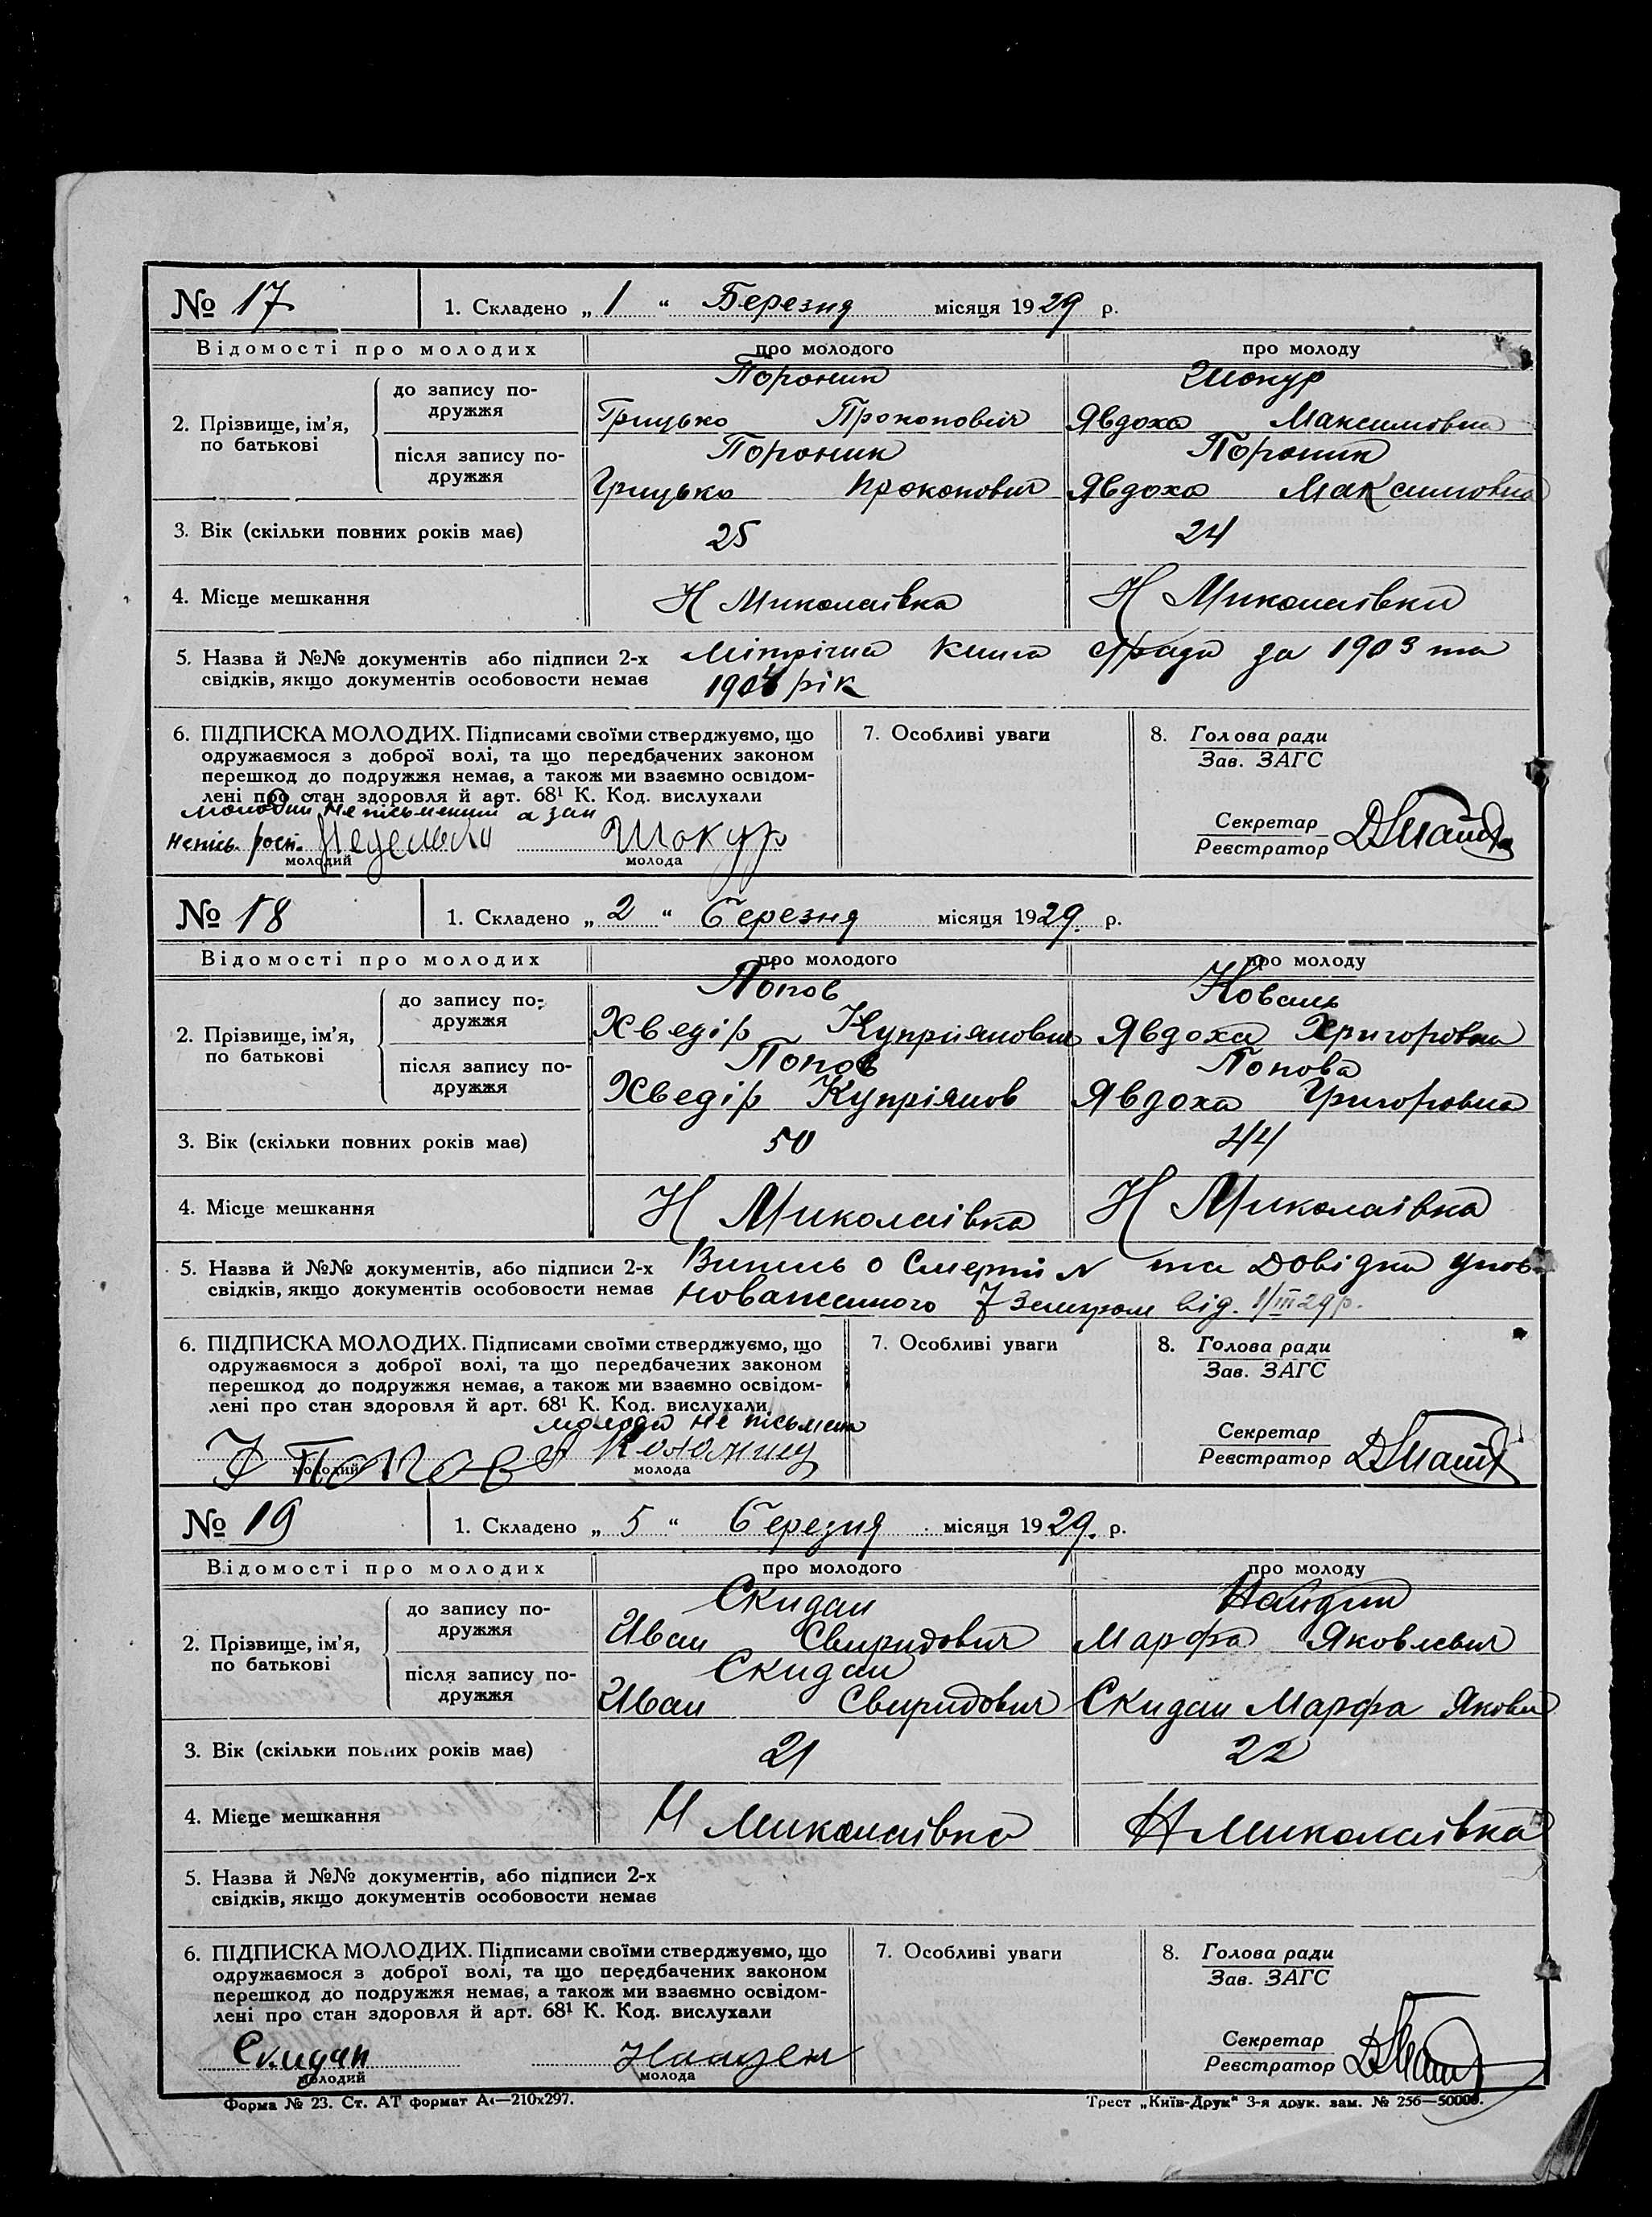 № 17 1. Складено „ 1 “ Березня місяця 1929 р.
Відомості про молодих про молодого про молоду
Пороник Шокур
до запису по-
дружжя
Грицько Прокопович Явдоха Максимовна
2. Прізвище, ім’я,
по батькові
Пороник Пороник
після запису по-
дружжя
Грицько Прокопович Явдоха Максимовна
3. Вік (скільки повних років має) 25 24
4. Місце мешкання Н Миколаівка Н Миколаівки
5. Назва й №№ документів або підписи 2-х Мітрічна книга за 1903 та
свідків, якщо документів особовости немає 1904 рік
6. ПІДПИСКА МОЛОДИХ. Підписами своїми стверджуємо, що
одружаємося з доброї волі, та що передбачених законом
перешкод до подружжя немає, а також ми взаємно освідом-
лені про стан здоровля й арт. 68¹ К. Код. вислухали
молодий не письменний а за
непись. росп. Шокур
молодий молода
7. Особливі уваги
8. Голова ради
Зав. ЗАГС
Секретар
Реєстратор
№ 18 1. Складено „ 2 “ Березня місяця 1929. р.
Відомості про молодих про молодого про молоду
Попов Коваль
до запису по-
дружжя
Хведір Купріянович Явдоха Григоровна
2. Прізвище, ім’я,
по батькові
Попов Попова
після запису по-
дружжя
Хведір Купріянов Явдоха Григоровна
3. Вік (скільки повних років має) 50 44
4. Місце мешкання Н Миколаівка Н Миколаівка
5. Назва й №№ документів, або підписи 2-х Випись о Смерті № та Довідка упов-
свідків, якщо документів особовости немає новаженного 7 Земгром від. 1/III 29 р.
6. ПІДПИСКА МОЛОДИХ. Підписами своїми стверджуємо, що
одружаємося з доброї волі, та що передбачених законом
перешкод до подружжя немає, а також ми взаємно освідом-
лені про стан здоровля й арт. 68¹ К. Код. вислухали
молода не письмена
Попов
молодий молода
7. Особливі уваги
8. Голова ради
Зав. ЗАГС
Секретар
Реєстратор
№ 19 1. Складено „ 5 “ Березня місяця 1929. р.
Відомості про молодих про молодого про молоду
Скидан
до запису по-
дружжя
Иван Свиридович Марфа Яковлевич
2. Прізвище, ім’я,
по батькові
Скидан
після запису по-
дружжя
Иван Свиридович Скидан Марфа Якови
3. Вік (скільки повних років має) 21 22
4. Місце мешкання Н Миколаівка Н Миколаівка
5. Назва й №№ документів, або підписи 2-х
свідків, якщо документів особовости немає
6. ПІДПИСКА МОЛОДИХ. Підписами своїми стверджуємо, що
одружаємося з доброї волі, та що передбачених законом
перешкод до подружжя немає, а також ми взаємно освідом-
лені про стан здоровля й арт. 68¹ К. Код. вислухали
Скидан
молодий молода
7. Особливі уваги
8. Голова ради
Зав. ЗАГС
Секретар
Реєстратор
Форма № 23. Ст. АТ формат А4—210х297. Трест „Київ-Друк“ 3-я друк. зам. № 256—50000.